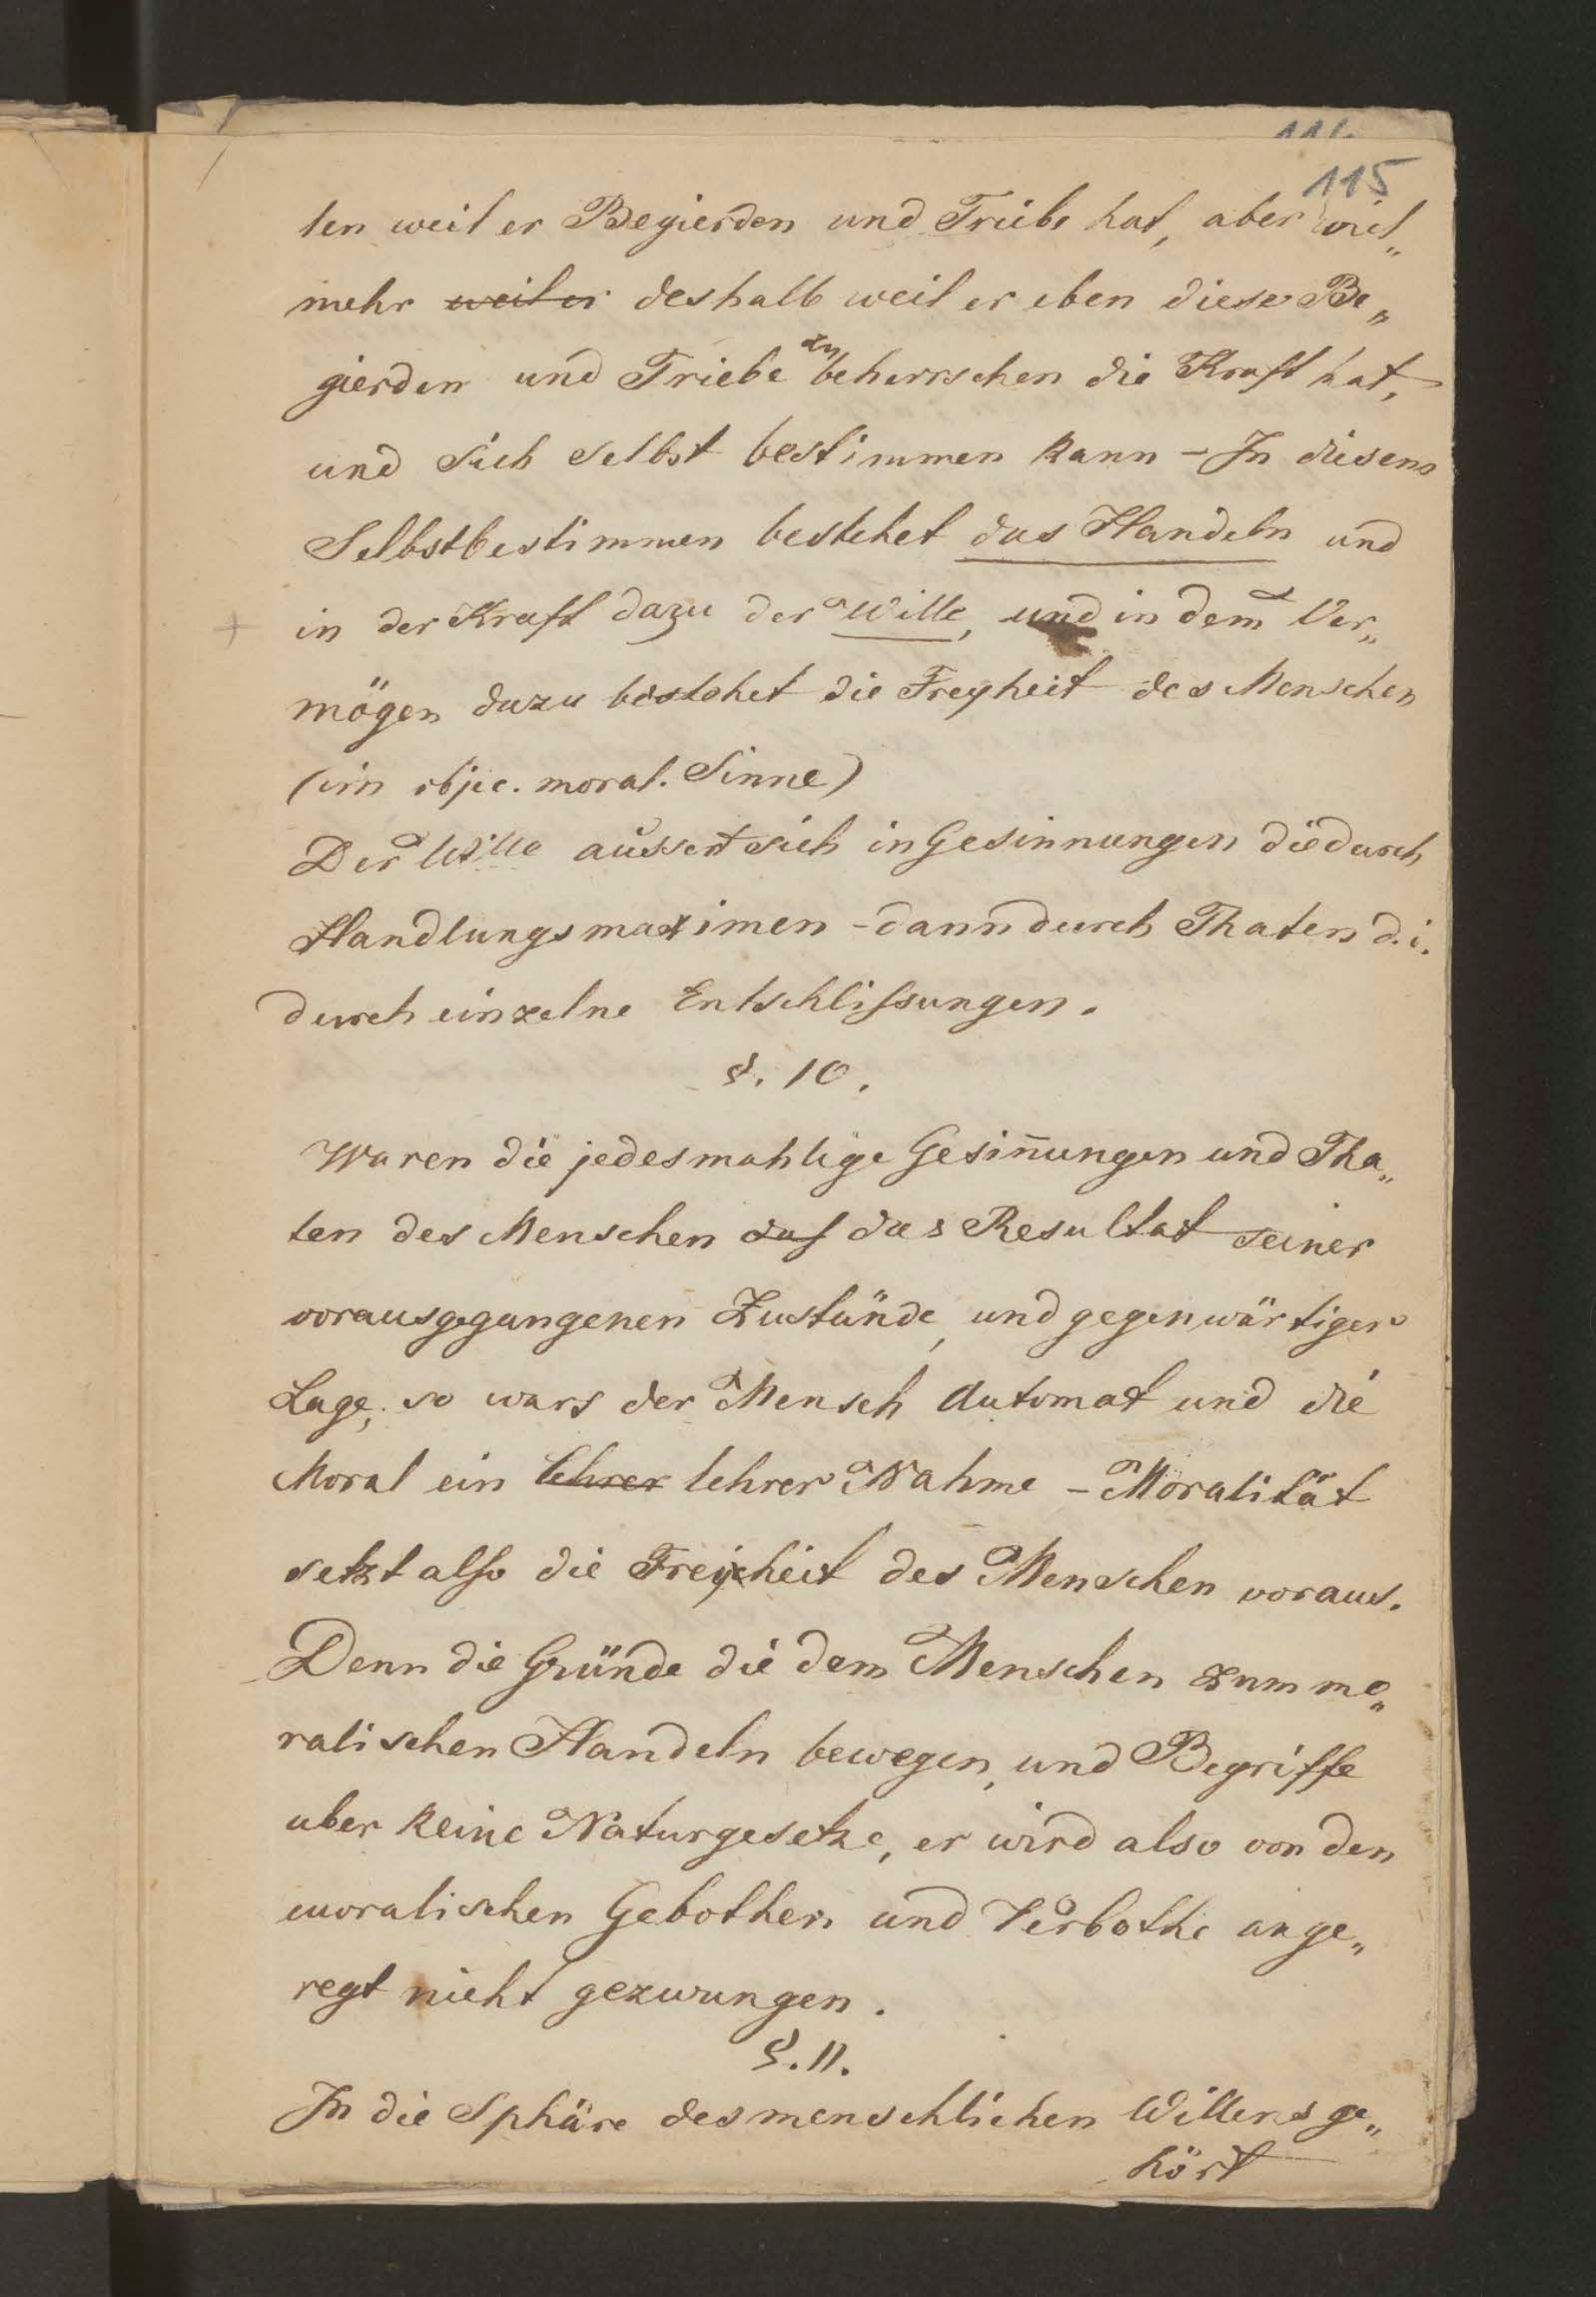 115
ten weil er Begierden und Triebe hat, aber viel„
mehr weil er deshalb weil er eben diese Be„
gierden und Triebe zu beherrschen die Kraft hat,
und sich selbst bestimmen kann – In diesem
Selbstbestimmen bestehet das Handeln und
in der Kraft dazu der Wille, und in dem Ver„
mögen dazu bestehet die Freyheit des Menschen
(im objec. moral. Sinne)
Der Wille aüssert sich in Gesinnungen die durch
Handlungsmaximen – dann durch Thaten d. i.
durch einzelne Entschlissungen.
§. 10.
Waren die jedesmahlige Gesiñungen und Tha„
ten des Menschen das das Resultat seiner
vorausgegangenen Zustände, und gegenwärtiger
Lage; so wars der Mensch Automat und die
Moral ein lehrer lehrer Nahme – Moralität
setzt also die Freyheit des Menschen voraus.
Denn die Gründe die dem Menschen zum mo„
ralischen Handeln bewegen, und Begriffe
aber keine Naturgesetze, er wird also von den
moralischen Gebothen und Verbothe ange„
regt nicht gezwungen.
§. 11.
In die Sphäre des menschlichen Willens ge„
hört